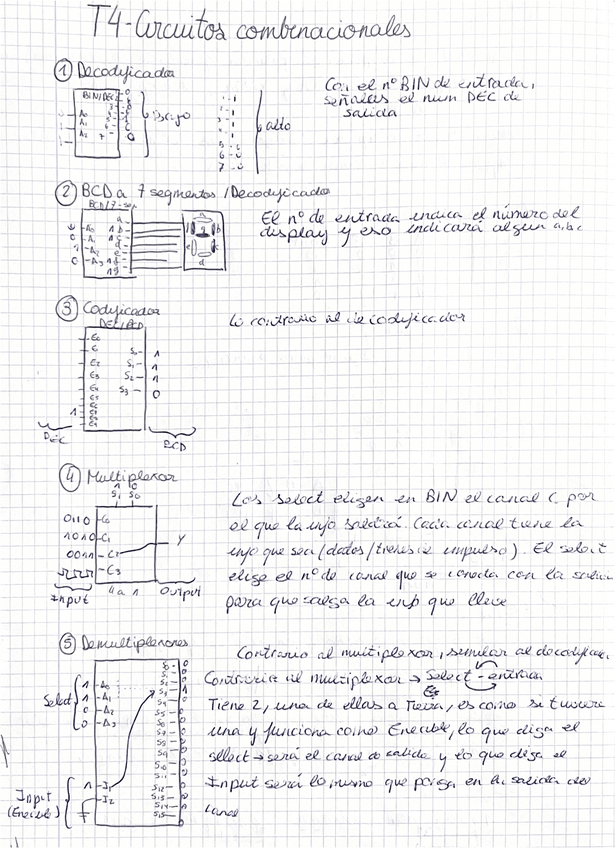 T4-Circuitos combinacionales
① Decodificador
BIN/DEC
A0
A1
A2
bajo
alto
Con el nº BIN de entrada,
señalas el num DEC de
salida
② BCD a 7 segmentos / Decodificador
BCD/7-seg
A0
A1
A2
A3
a
b
c
d
e
f
g
El nº de entrada indica el número del
display y eso indicará algun a,b,c
③ Codificador
DEC/BCD
E0
E
E2
E3
E4
S0
S1
S2
S3
1
1
1
0
DEC
BCD
Lo contrario al decodificador
④ Multiplexor
1 0
S1 S0
0110 C0
1010 C1
0011 C2
C3
Y
Input
4 a 1
Output
Los select eligen en BIN el canal C por
el que la info saldrá. Cada canal tiene la
info que sea (datos/trenes de impulso). El select
elige el nº de canal que se conecta con la salida
para que salga la info que lleve
⑤ Demultiplexores
Select
1 A0
1 A1
0 A2
0 A3
S0
S1
S2
S3
S4
S5
S6
S7
S8
S9
S10
S11
S12
S13
S14
S15
Input
(Enable)
1 I1
I2
Contrario al multiplexor, similar al decodificador.
Contrario al multiplexor → Select - entrada
Tiene 2, una de ellas a Tierra, es como si tuviera
una y funciona como Enable, lo que diga el
select → será el canal de salida y lo que diga el
Input será lo mismo que ponga en la salida del
canal